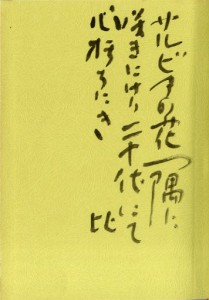 サルビアの花一隅に
咲きにけり二十代にて
心